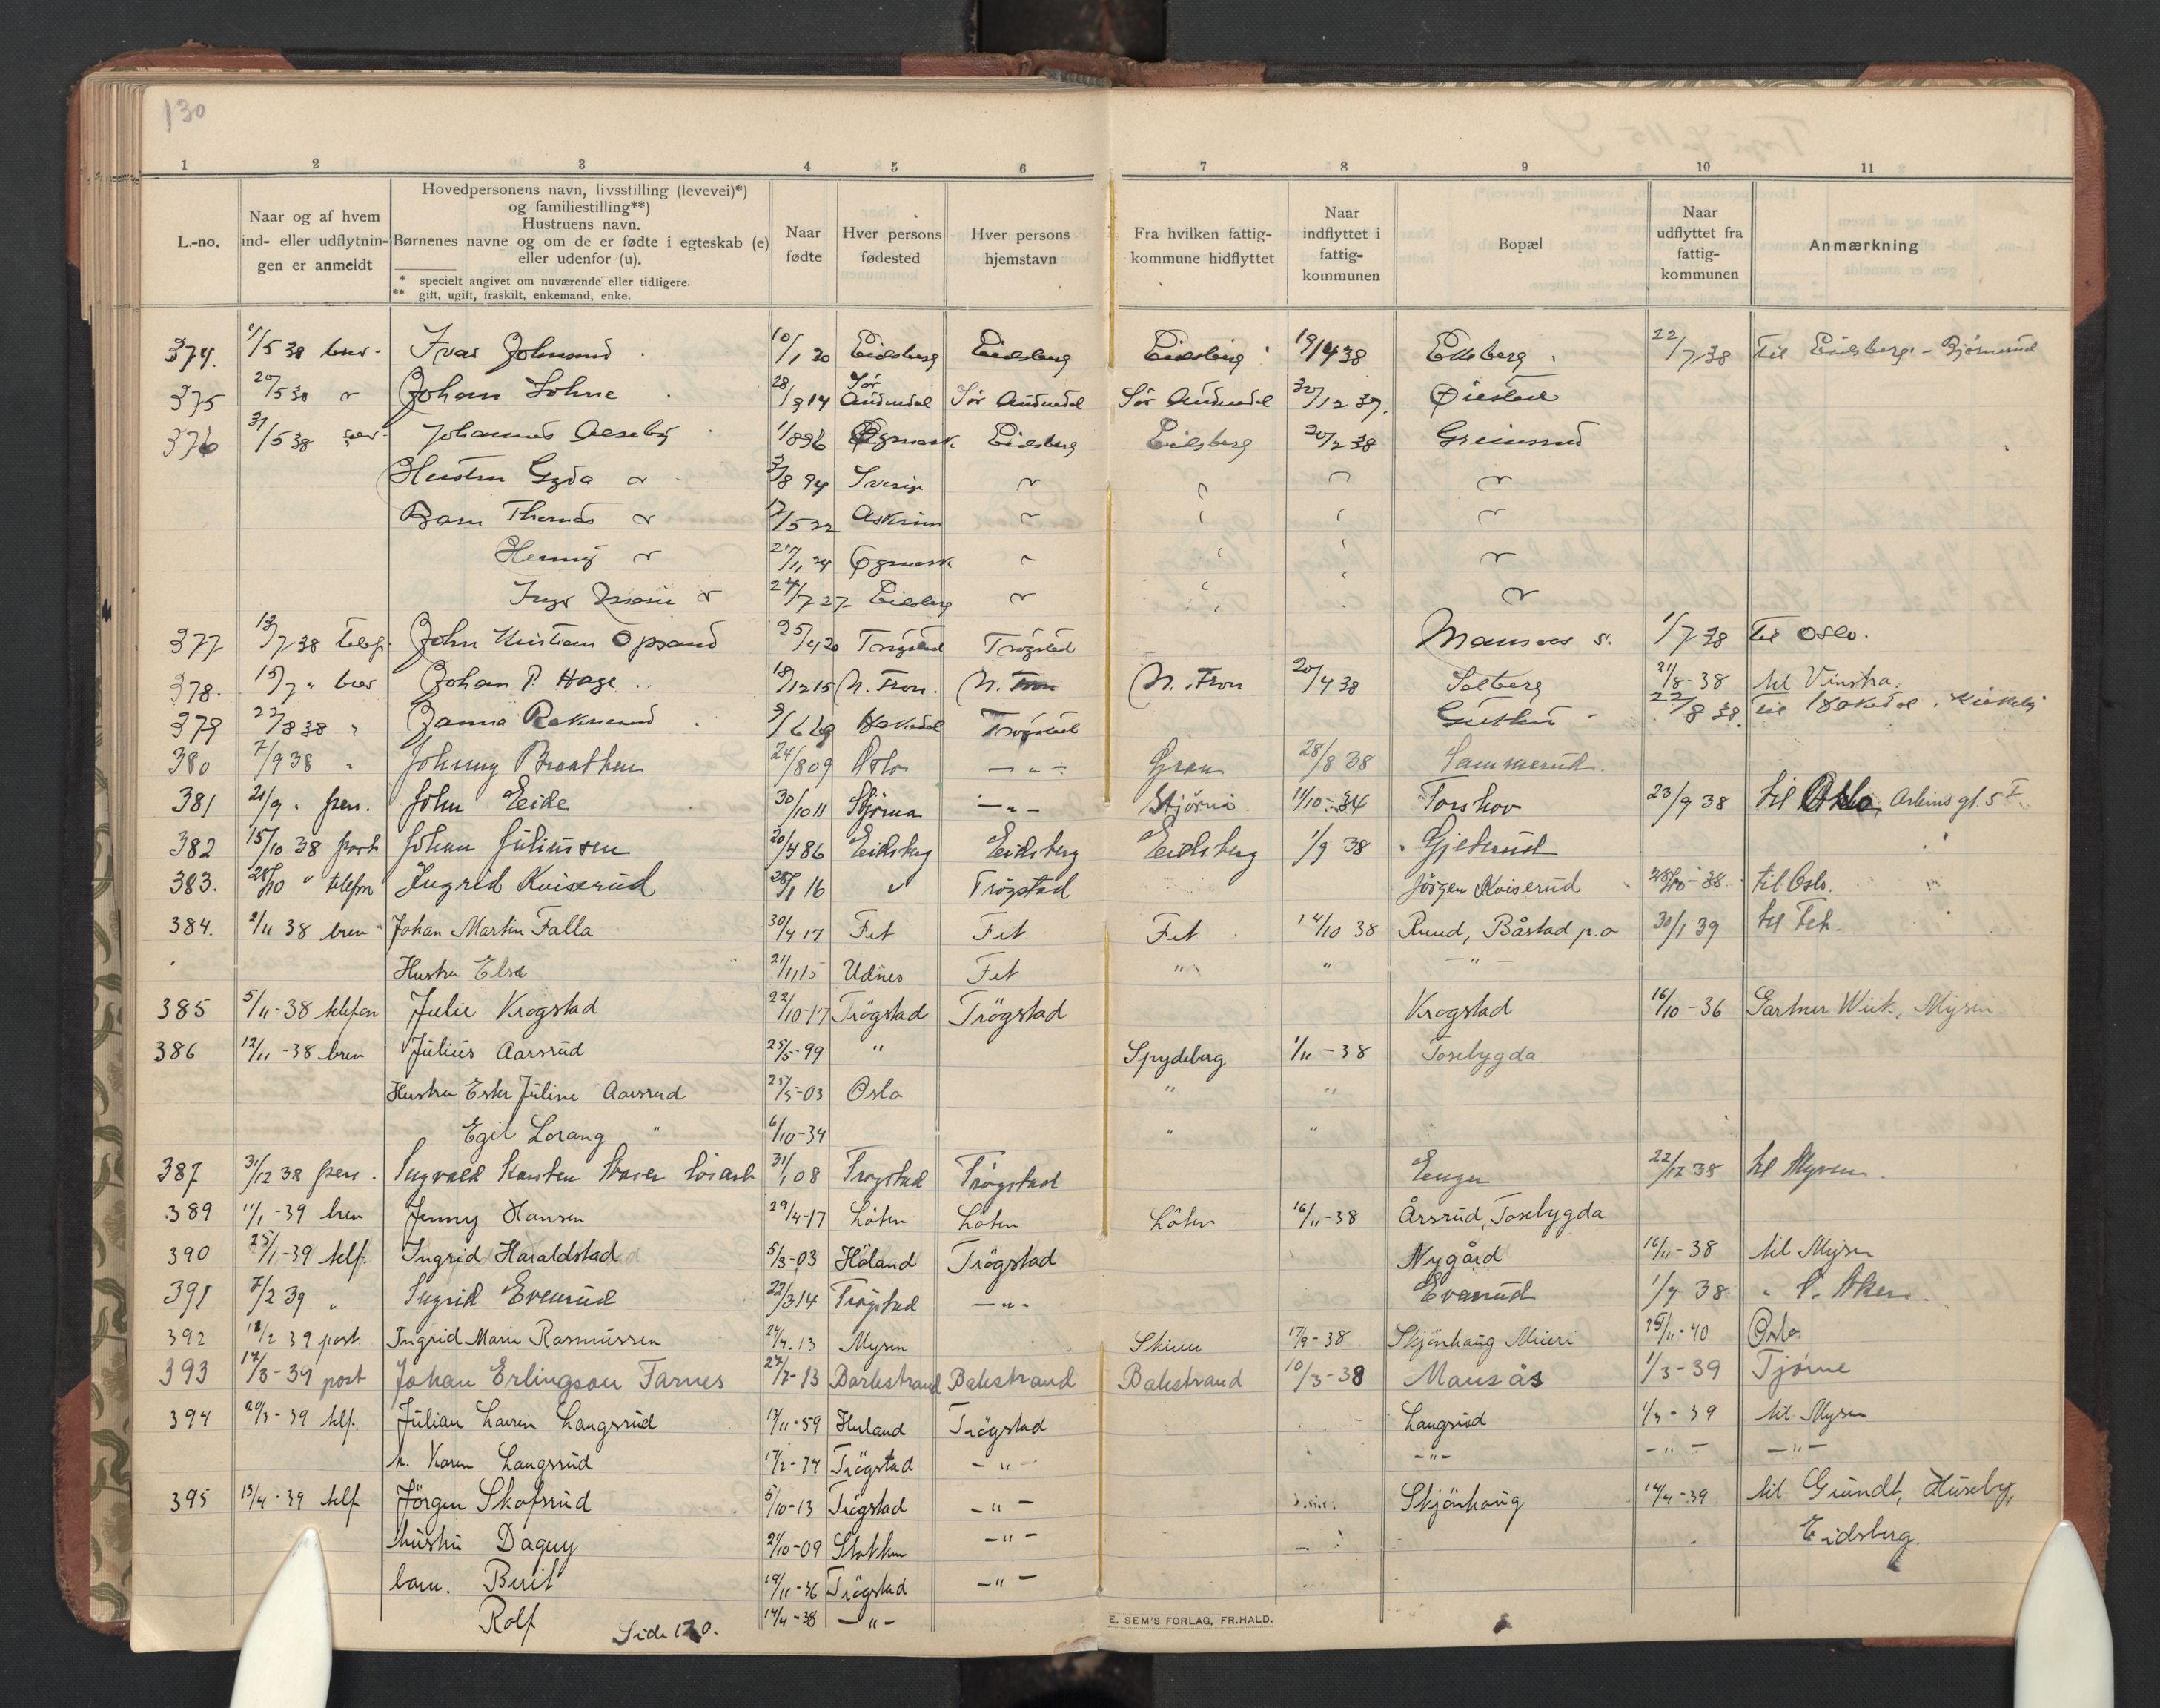 130
1 2 3 4 5 6 7 8 9 10 11
L.-no.
Naar og af hvem ind- eller udflytningen er anmeldt
Hovedpersonens navn, livsstilling (levevei)*) og familiestilling**)
Hustruens navn.
Børnenes navne og om de er fødte i egteskab (e) eller udenfor (u).
* specielt angivet om nuværende eller tidligere.
** gift, ugift, fraskilt, enkemand, enke.
Naar fødte
Hver persons fødested
Hver persons hjemstavn
Fra hvilken fattigkommune hidflyttet
Naar indflyttet i fattigkommunen
Bopæl
Naar udflyttet fra fattigkommunen
Anmærkning
374. 1/5 38 brev Ivar 10/1 20 Eidsberg Eidsberg Eidsberg 19/4 38 22/7 38 til Eidsberg - Bjørnerud
375 20/5 38 " Johan 28/9 14 Sør Audnedal Sør Audnedal Sør Audnedal 30/12 37. Øiestad
376 31/5 38 Johannes 1/8 96 Øymark Eidsberg Eidsberg 20/2 38 Greimsrud
Hustru Gyda " 3/8 94 Sverige " " " "
Barn Thomas " 17/5 22 Askim " " " "
Henny " 24 Øymark " " " "
Inger " 24/7 27 Eidsberg " " " "
377 13/7 38 telef. John Kristian Opsand 25/4 20 Trøgstad Trøgstad Mansaas s. 1/7 38 til Oslo.
378. 15/7 " brev Johan P. Hage 18/12 15 N. Fron. N. Fron N. Fron 20/4 38 Solberg 21/8-38 til Vinstra.
379 22/8 38 " Hakadal Trøgstad 22/8 38. til Hakadal
380 7/9 38 " Johnny Braathen 24/8 09 Oslo — " — Gran 28/8 38 Sammerud.
381 21/9 " pers. John Eide 30/10 11 Stjørna — " — Stjørna 11/10 34 Torshov 23/9 38 til Oslo,
382 15/10 38 post Johan Juliussen 20/4 86 Eidsberg Eidsberg Eidsberg 1/9 38 Gjeterud
383. 28/10 " telefon Ingrid Kviserud 28/1 16 " Trøgstad Jörgen Kviserud 28/10-38 til Oslo.
384. 2/11 38 brev Johan Martin Falla 30/4 17 Fet Fet Fet 14/10 38 Ruud, Båstad p.o 30/1 39 til Fet.
Hustru Else 21/11 15 Udnes Fet " " — " —
385 5/11-38 telefon Julie Krogstad 22/10-17 Trögstad Trögstad Krogstad 16/10-36 Gartner Wiik, Mysen
386 12/11-38 brev Julius Aarsrud 25/5-99 " Spydeberg 1/11-38 Tosebygda.
Hustru Ester Juline Aarsrud 25/5-03 Oslo " "
Egil Lorang " 6/10-34 " "
387 31/12 38 pers. Ingvald Karsten 31/1 08 Trøgstad Trøgstad Enger 22/12 38 til Mysen.
389 11/1-39 brev Jenny Hansen 29/4-17 Löten Löten Löten 16/11-38 Årsrud, Tosebygda
390 25/1-39 telf. Ingrid Haraldstad 5/3-03 Höland Trögstad Nygård 16/11-38 til Mysen
391 7/2 39 " Ingrid Evenrud 22/3 14 Trøgstad — " — Evenrud 1/9 38 " Aker.
392 18/2 39 post. Ingrid Marie Rasmussen 24/4.13 Mysen Skien 17/9-38 Skjönhaug Mieri 25/11-40 Oslo.
393 17/3-39 post Johan Erlingson Farnes 27/7-13 Barlestrand Balestrand Balestrand 10/3-38 Mansås 1/3-39 Tjöme
394 20/3-39 telf. Julian Laurin Langsrud 13/11-59 Höland Trögstad Langsrud 1/3-39 til Mysen
h. Karen Langsrud 17/2-74 Trögstad — " — — " — — " — — " —
395 13/4-39 telf Jörgen Skofsrud 5/10-13 Trögstad — " — Skjönhaug 14/4-39 til Grundt, Huseby, Eidsberg.
hustru Dagny 21/10-09 Stokken — " —
barn. Berit 19/11-36 Trögstad — " —
Rolf 14/4-38 — " —
Side 170.
E. SEM'S FORLAG, FR.HALD.